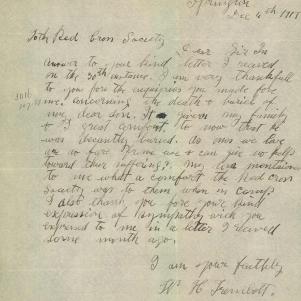 Dec 4th 1918
To the Red Cross Society
Dear Sir In
answer to your kind letter I received
on the 30th I am very thankfull
to you fore the inquiries you made fore
me concerning the death & buriel of
my dear son. It gives my family
& I great comfort to now that he
was decently buried. As one we have
so fare from we can give no help
toward their suffering? my son mentioned
to me what a comfort the Red Cross
Society was to them when in camp
I also thank you fore your kind
expression of sympathy wich you
expressed to me in a letter I received
some month ago.
I am yours faithfuly
W. H.